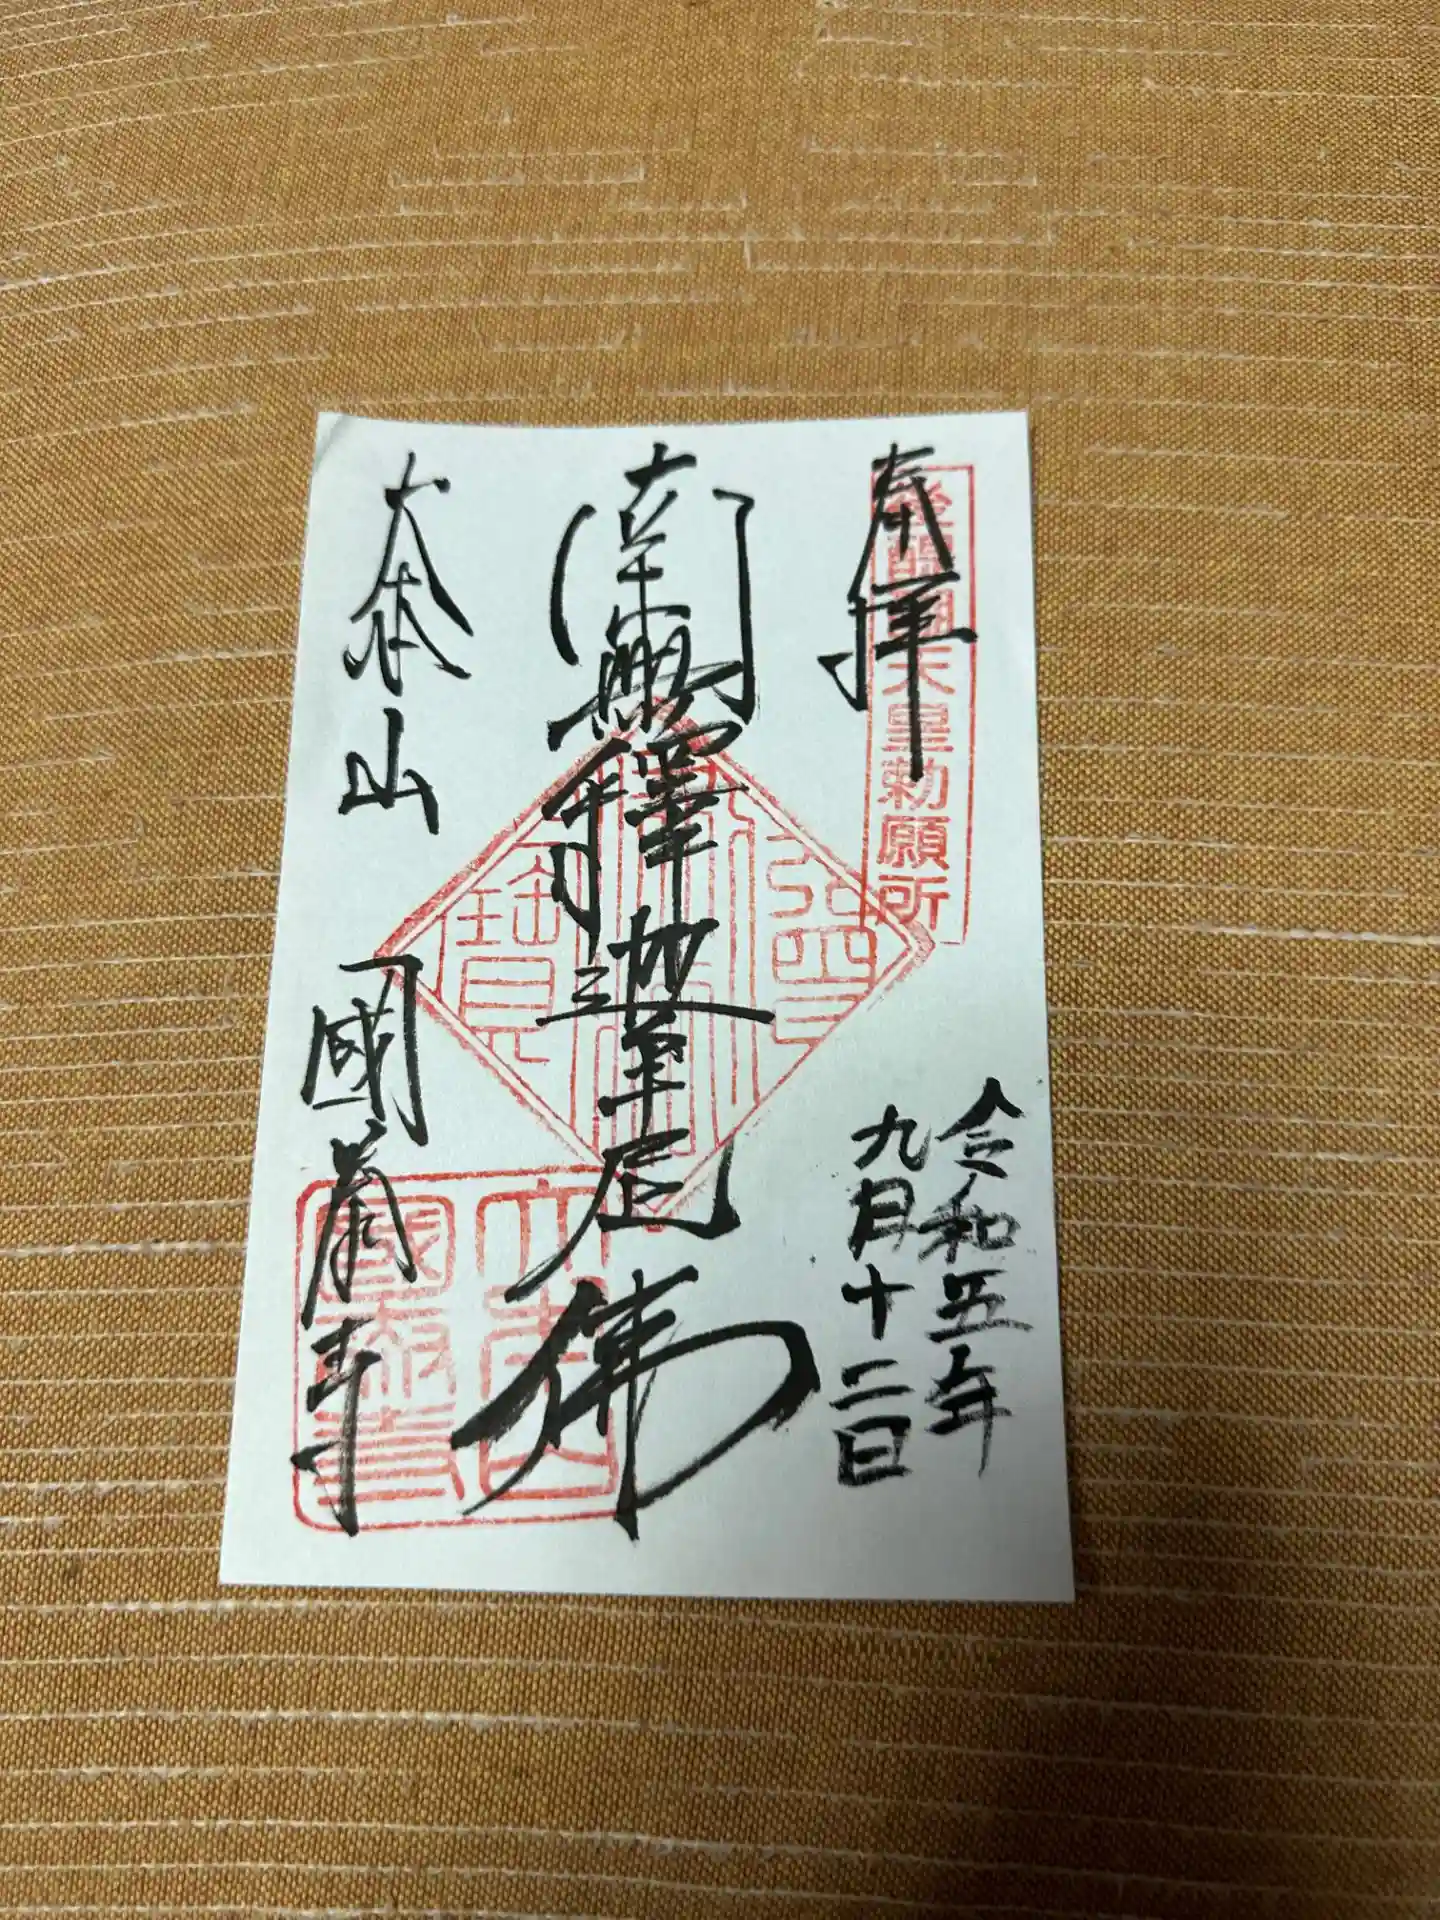 奉拝
後醍醐天皇勅願所
令和五年
九月十二日
南無釋迦牟尼佛
三
大本山
國泰寺